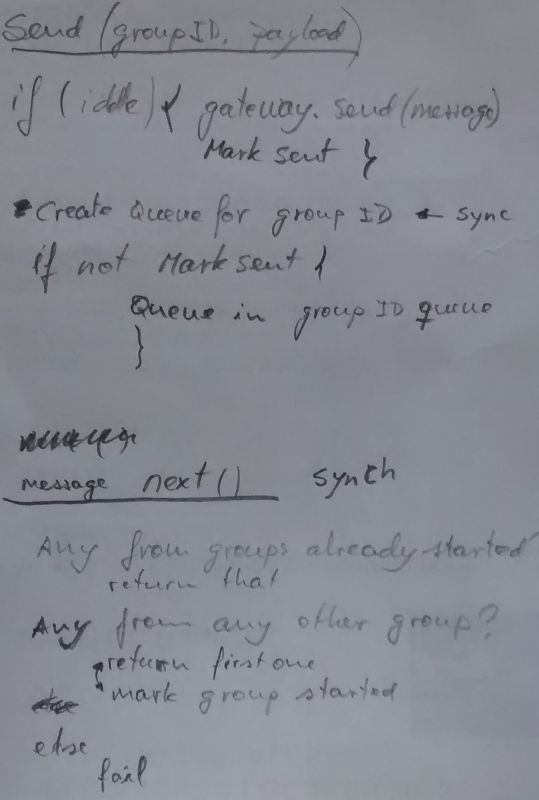 Send (groupID, payload)
if (iddle) { gateway.send(message)
Mark sent }
Create Queue for group ID ← sync
if not Mark sent {
Queue in group ID queue
}
message next() synch
Any from groups already started
return that
Any from any other group?
return first one
mark group started
else
fail